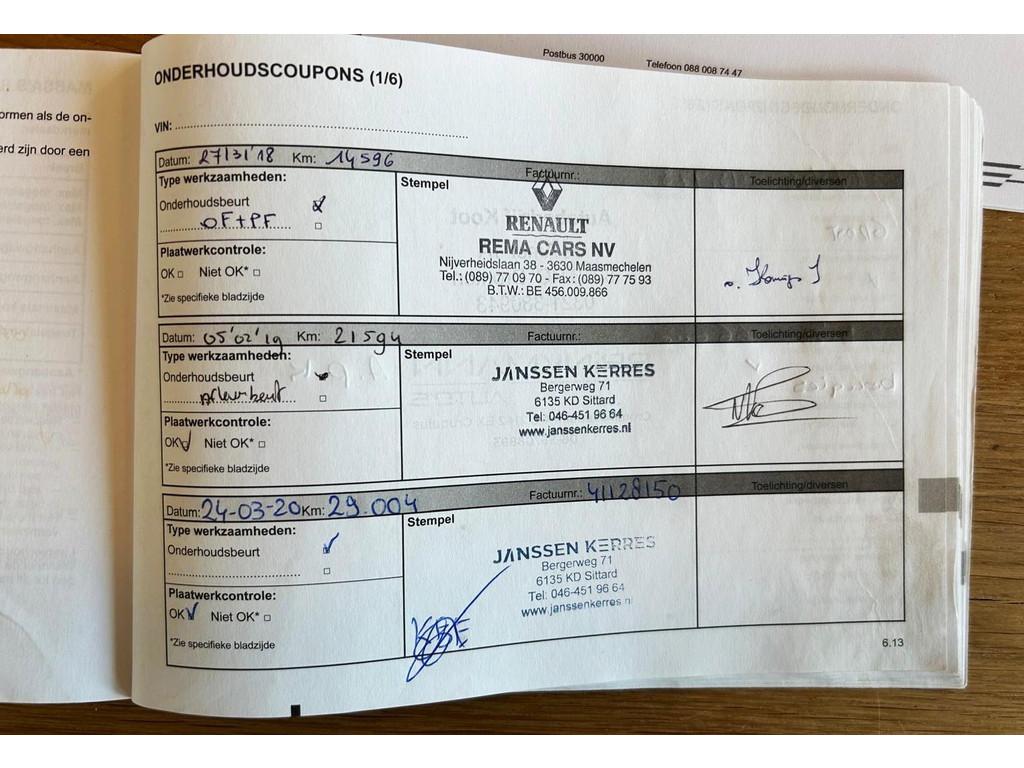 Postbus 30000
Telefoon 088 008 74 47
ormen als de on-
erd zijn door een
ONDERHOUDSCOUPONS (1/6)
VIN:
Datum: 27/3/'18 Km: 14596
Factuurnr.:
Toelichting/diversen
Type werkzaamheden:
Stempel
Onderhoudsbeurt
OF+PF
RENAULT
REMA CARS NV
Nijverheidslaan 38 - 3630 Maasmechelen
Tel.: (089) 77 09 70 - Fax: (089) 77 75 93
B.T.W.: BE 456.009.866
Plaatwerkcontrole:
OK Niet OK*
*Zie specifieke bladzijde
Datum: 05'02'19 Km: 21594
Factuurnr.:
Toelichting/diversen
Type werkzaamheden:
Stempel
Onderhoudsbeurt
JANSSEN KERRES
Bergerweg 71
6135 KD Sittard
Tel: 046-451 96 64
www.janssenkerres.nl
Plaatwerkcontrole:
OK Niet OK*
*Zie specifieke bladzijde
Datum: 24-03-20 Km: 29.004
Factuurnr.: 41128150
Toelichting/diversen
Type werkzaamheden:
Stempel
Onderhoudsbeurt
JANSSEN KERRES
Bergerweg 71
6135 KD Sittard
Tel: 046-451 96 64
www.janssenkerres.nl
Plaatwerkcontrole:
OK Niet OK*
*Zie specifieke bladzijde
6.13